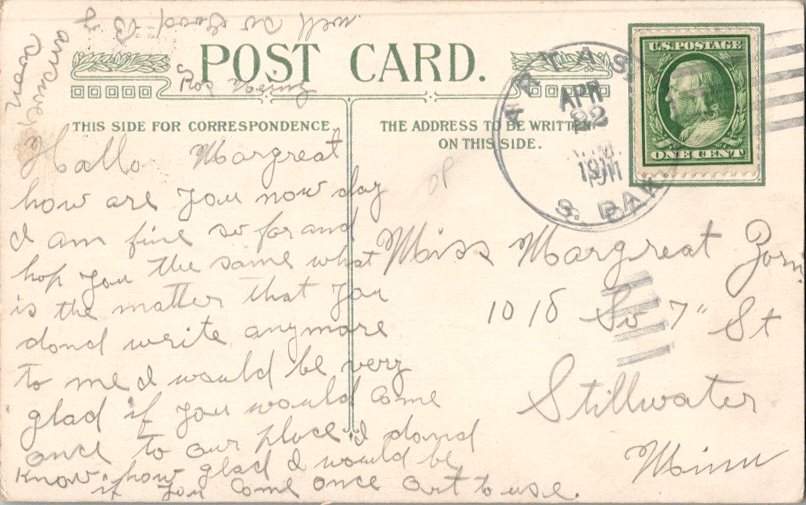 well so Good By
answer
soon
POST CARD.
THIS SIDE FOR CORRESPONDENCE
THE ADDRESS TO BE WRITTEN
ON THIS SIDE.
U.S. POSTAGE
ONE CENT
ARTAS
APR
22
1911
S. DAK.
Hallo Margreat
how are you now day
I am fine so far and
hop you the same what
is the matter that you
dond write anymore
to me I would be very
glad if you would come
once to our place. I dond
know how glad I would be
if you come once ort to use.
OP
Miss Margreat Zorn
1018 So 7" St
Stillwater
Minn